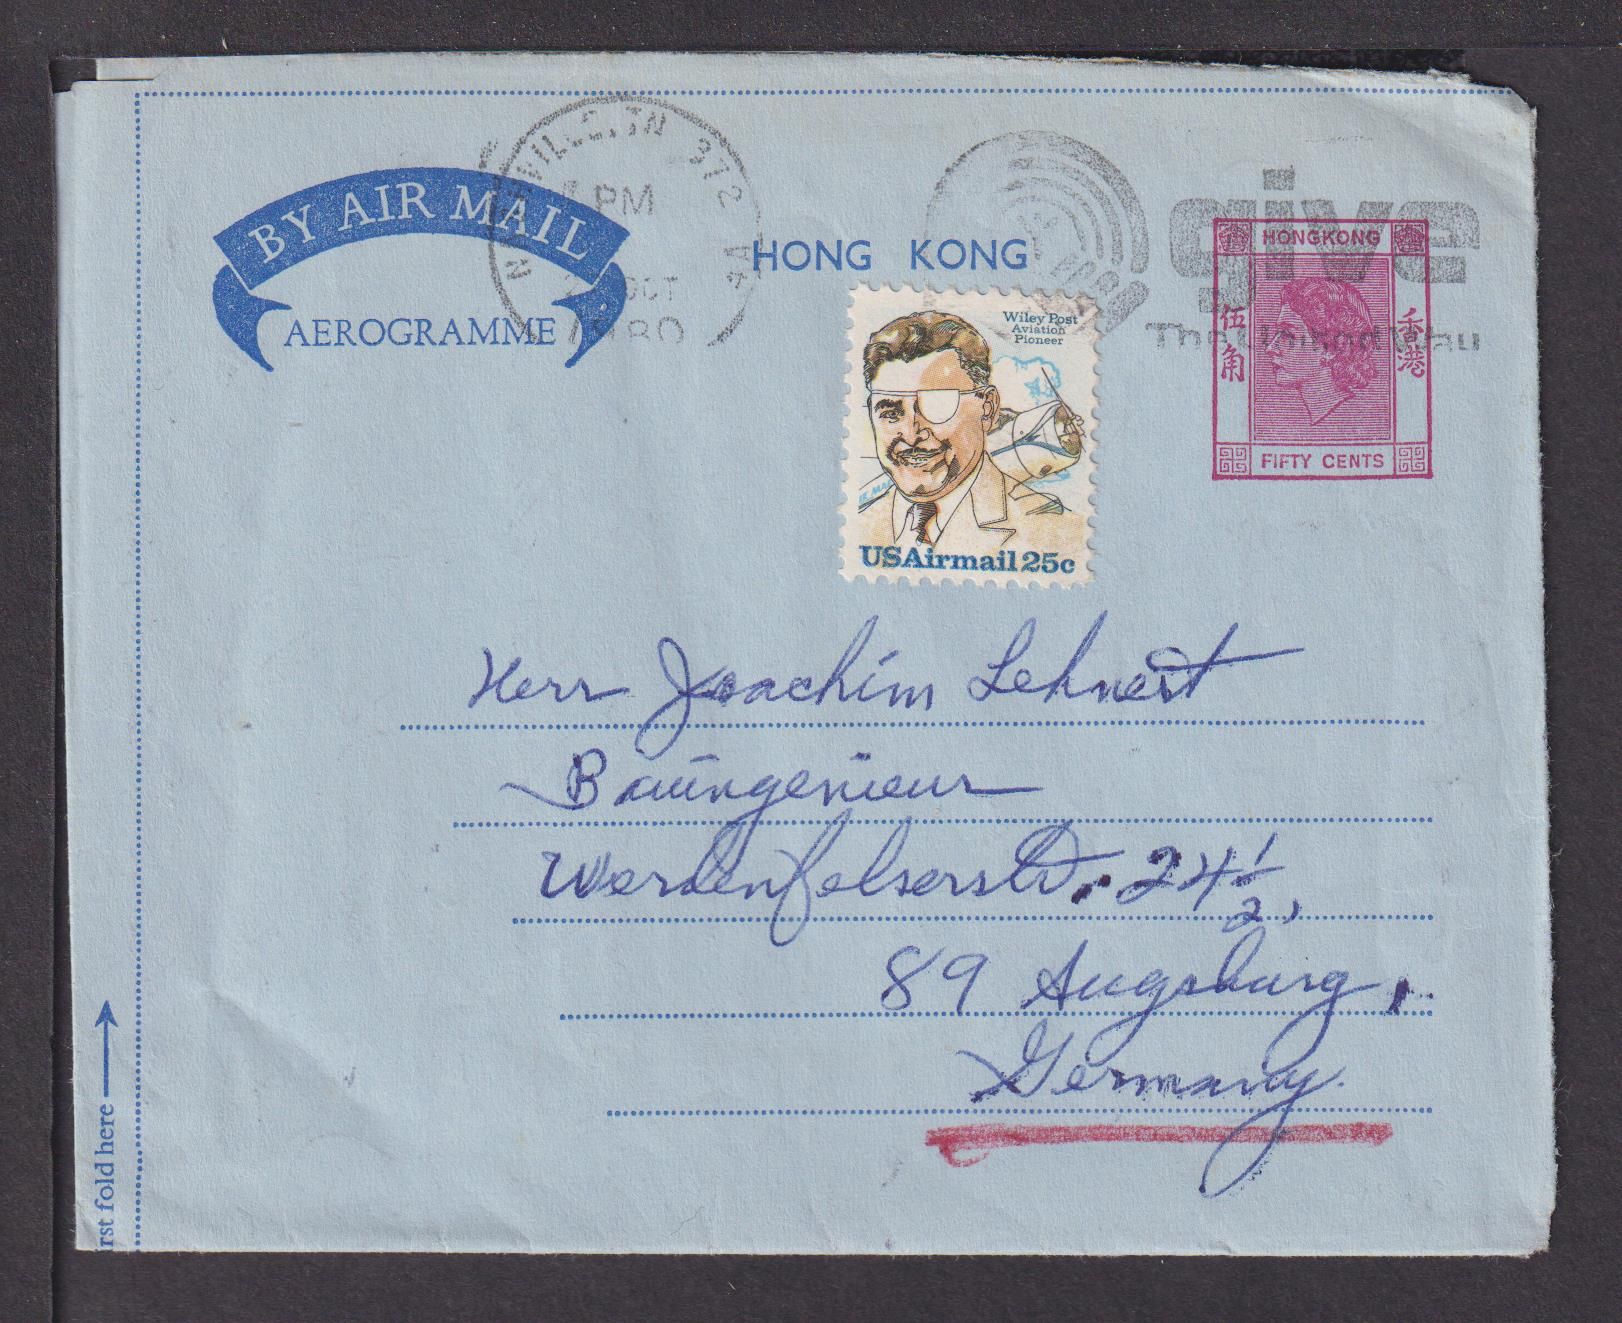 BY AIR MAIL
AEROGRAMME
TN 372
PM
OCT
1980
HONG KONG
give
The United Way
HONG KONG
伍角
香港
FIFTY CENTS
Wiley Post
Aviation
Pioneer
USAirmail 25c
Herr Joachim Lehnert
Bauingenieur
Werdenfelserstr. 24 1/2,
89 Augsburg,
Germany.
rst fold here